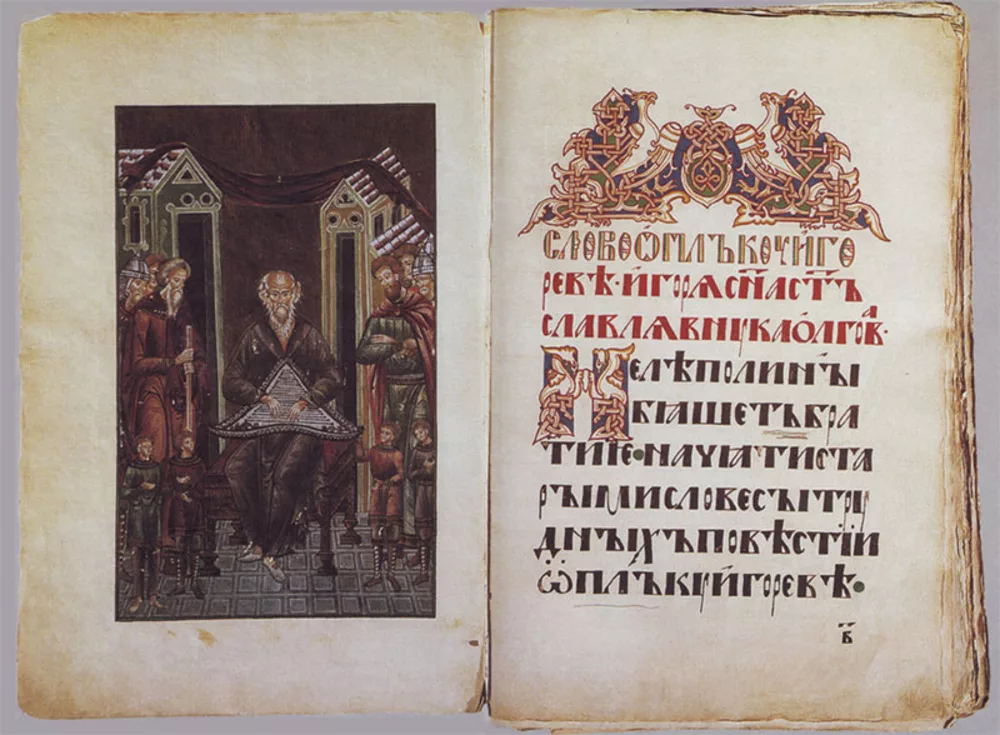 СЛОВОѾПЛЪКОУИ́ГО
РЕВѢ·И́ГОРѦСН҃АСТ҃Ъ
СЛАВЛѦВНꙋКАО́ЛГОВⷶ·
НЕЛѢПОЛИНЫ
БꙖШЕТЪБРА
ТИѤ·НАЧꙖТИСТА
РЫМИСЛОВЕСЫТРꙋ
ДНЫХЪПОВѢСТІИ
ѾПЛЪКꙋИ́ГОРЕВѢ·
в҃